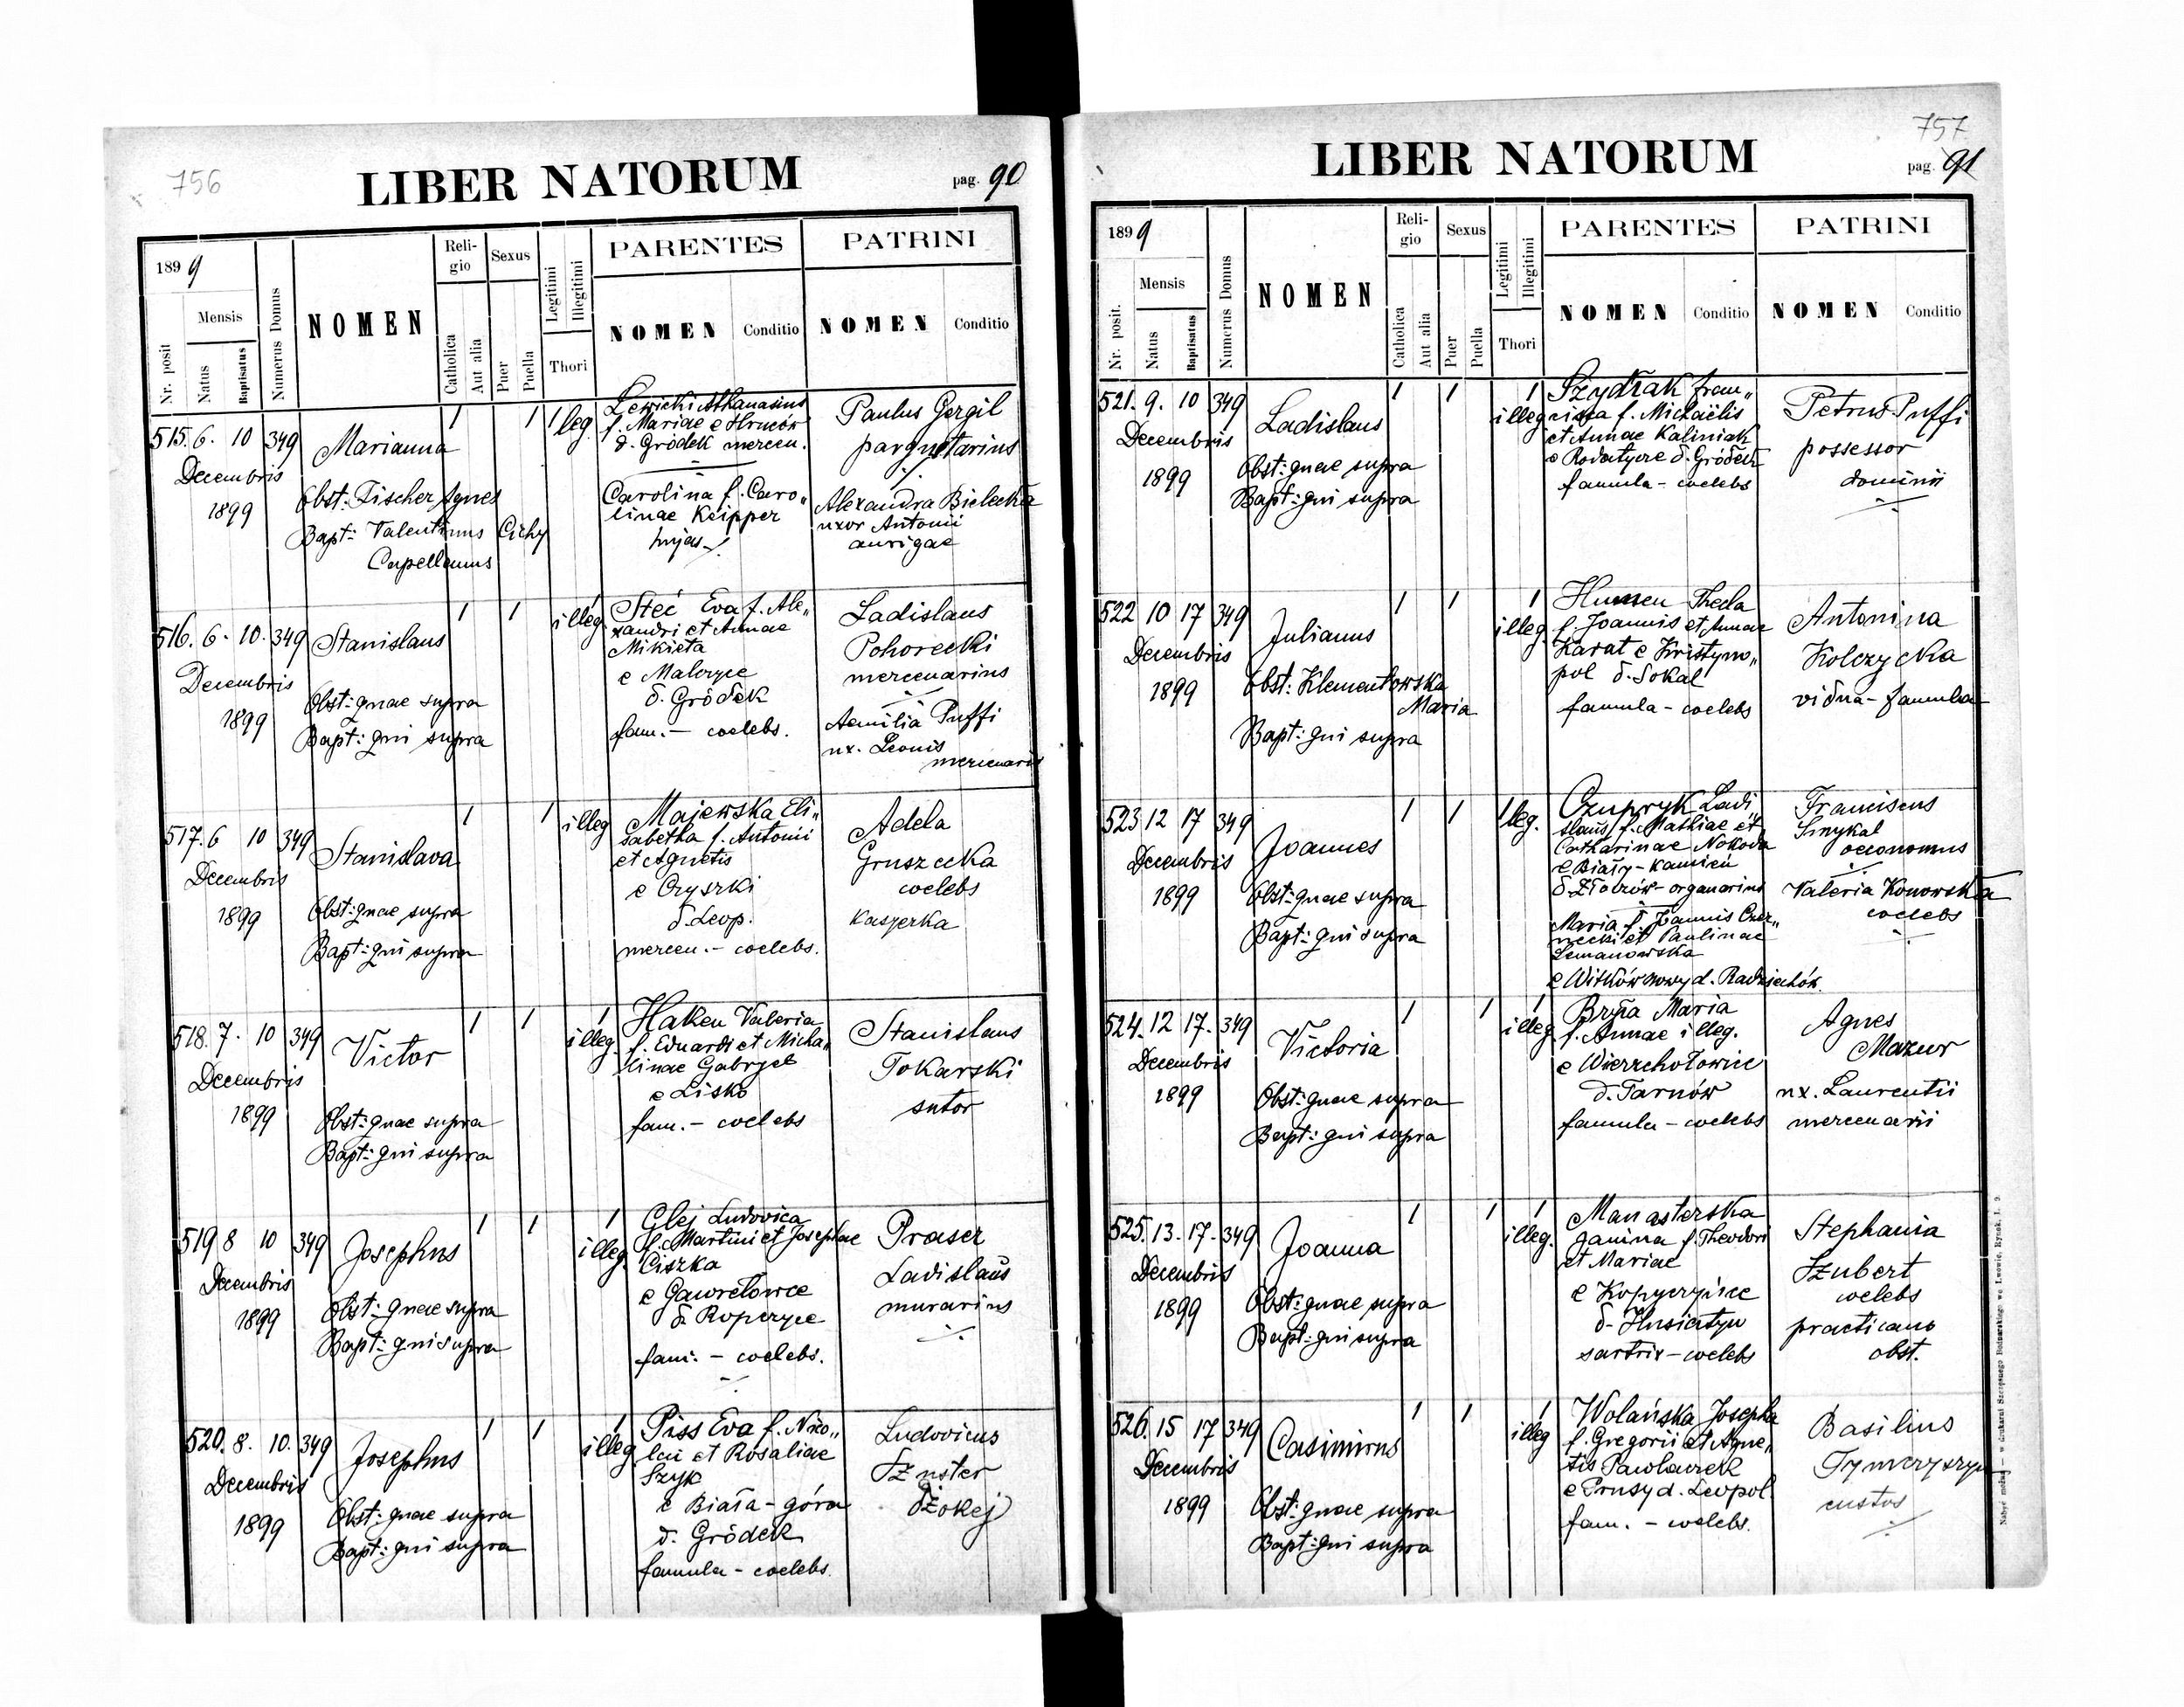 756
LIBER NATORUM
pag. 90
1899
Mensis
Nr. posit
Natus
Baptisatus
Numerus Domus
NOMEN
Religio
Catholica
Aut alia
Sexus
Puer
Puella
Legitimi
Illegitimi
Thori
PARENTES
NOMEN
Conditio
PATRINI
NOMEN
Conditio
515. 6. 10 349
Decembris
1899
Marianna
Obst: Fischer Agnes
Bapt: Valentinus Cichy
Capellanus
1 1 1 leg.
Lewicki Athanasius
f. Mariae e Hruców
d. Gródek mercen.
Carolina f. Caro„
linae Keipper
hujas
Paulus Gergil
parquetarius
Alexandra Bielecka
uxor Antonii
aurigae
516. 6. 10. 349
Decembris
1899
Stanislaus
Obst: quae supra
Bapt: qui supra
1 1 1
illeg.
Steć Eva f. Ale„
xandri et Annae
Mikieta
e Malczyce
d. Gródek
fam. – coelebs.
Ladislaus
Pohorecki
mercenarius
Aemilia Puffi
ux. Leonis
mercenarii
517. 6 10 349
Decembris
1899
Stanislava
Obst: quae supra
Bapt: qui supra
1 1 1
illeg
Majewska Eli„
sabetha f. Antonii
et Agnetis
e Czyszki
d. Leop.
mercen. – coelebs.
Adela
Gruszecka
coelebs
kasyerka
518. 7. 10 349
Decembris
1899
Victor
Obst: quae supra
Bapt: qui supra
1 1 1
illeg.
Haken Valeria
f. Eduardi et Micha„
linae Gabryel
e Lisko
fam. – coelebs
Stanislaus
Tokarski
sutor
519 8 10 349
Decembris
1899
Josephus
Obst: quae supra
Bapt: qui supra
1 1 1
illeg.
Glej Ludovica
f. Martini et Josephae
Ciszka
e Gawretowce
d. Ropczyce
fam. – coelebs.
Praser
Ladislaus
murarius
520. 8. 10. 349
Decembris
1899
Josephus
Obst: quae supra
Bapt: qui supra
1 1 1
illeg
Piss Eva f. Nico„
lai et Rosaliae
Szyk
e Biała-góra
d. Gródek
famula – coelebs.
Ludovicus
Szuster
Dżokej
757
LIBER NATORUM
pag. 91
1899
Mensis
Nr. posit.
Natus
Baptisatus
Numerus Domus
NOMEN
Religio
Catholica
Aut alia
Sexus
Puer
Puella
Legitimi
Illegitimi
Thori
PARENTES
NOMEN
Conditio
PATRINI
NOMEN
Conditio
521. 9. 10 349
Decembris
1899
Ladislaus
Obst: quae supra
Bapt: qui supra
1 1 1
illeg
Szydłak Fran„
cisca f. Michaëlis
et Annae Kaliniak
e Rodatycze d. Gródek
famula – coelebs
Petrus Puffi
possessor
dominii
522 10 17 349
Decembris
1899
Julianus
Obst: Klementowska
Maria
Bapt: qui supra
1 1 1
illeg.
Thecla
f. Joannis et Annae
Karat e Kristyno„
pol d. Sokal
famula – coelebs
Antonina
Kolczycka
vidua – famula
523 12 17 349
Decembris
1899
Joannes
Obst: quae supra
Bapt: qui supra
1 1 1 leg.
Czupryk Ladi
slaus f. Mathiae et
Catharinae Nokoda
e Biały-Kamień
d. Złoczów – organarius
Maria f. Joannis Czer„
necki et Paulinae
Lemanowska
e Witków nowy d. Radziechów.
Franciscus
Smykal
oeconomus
Valeria Konowska
coelebs
524. 12 17. 349
Decembris
1899
Victoria
Obst: quae supra
Bapt: qui supra
1 1 1
illeg
Bryła Maria
f. Annae illeg.
e Wierzchołowice
d. Tarnów
famula – coelebs
Agnes
Mazur
ux. Laurentii
mercenarii
525. 13. 17. 349
Decembris
1899
Joanna
Obst: quae supra
Bapt: qui supra
1 1 1
illeg.
Manasterska
Janina f. Theodori
et Mariae
e Kopyczyńce
d. Husiatyn
sartrix – coelebs
Stephania
Szubert
coelebs
practicans
obst.
526. 15 17 349
Decembris
1899
Casimirus
Obst: quae supra
Bapt: qui supra
1 1 1
illeg
Wolańska Josepha
f. Gregorii et Agne„
tis Pawlaczek
e Prusy d. Leopol.
fam. – coelebs.
Basilius
Tymczyszyn
custos